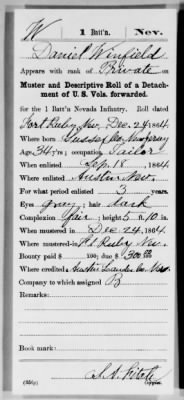 W | 1 Batt'n. | Nev.
Daniel Winfield
Appears with rank of Private on
Muster and Descriptive Roll of a Detach-
ment of U. S. Vols. forwarded.
for the 1 Batt'n Nevada Infantry. Roll dated
Fort Ruby Nev. Dec. 24, 1864.
Where born Sussex Co. New Jersey
Age 34 y'rs; occupation Tailor
When enlisted Sep 18, 1864.
Where enlisted Austin Nev.
For what period enlisted 3 years.
Eyes gray; hair dark
Complexion fair; height 5 ft. 10 in.
When mustered in Dec 24, 1864.
Where mustered in Ft. Ruby Nev.
Bounty paid $ 100; due $ 300 100
Where credited Austin Lander Co. Nev.
Company to which assigned B
Remarks:
Book mark:
(356g) Copyist.